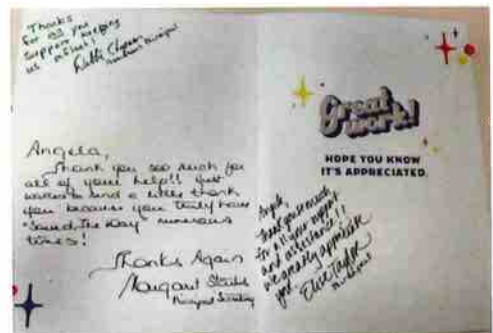 Thanks
for all you
support keeping
us afloat!
Angela,
Thank you soo much for
all of your help!! Just
wanted to send a little thank
you because you truly have
"Saved the day" numerous
times!
Thanks Again
Margaret
Principal Secretary
Great
work!
HOPE YOU KNOW
IT'S APPRECIATED.
Angela,
Thank you so much
for all your support
and assistance!!
We greatly appreciate
you!
Elsie Taylor